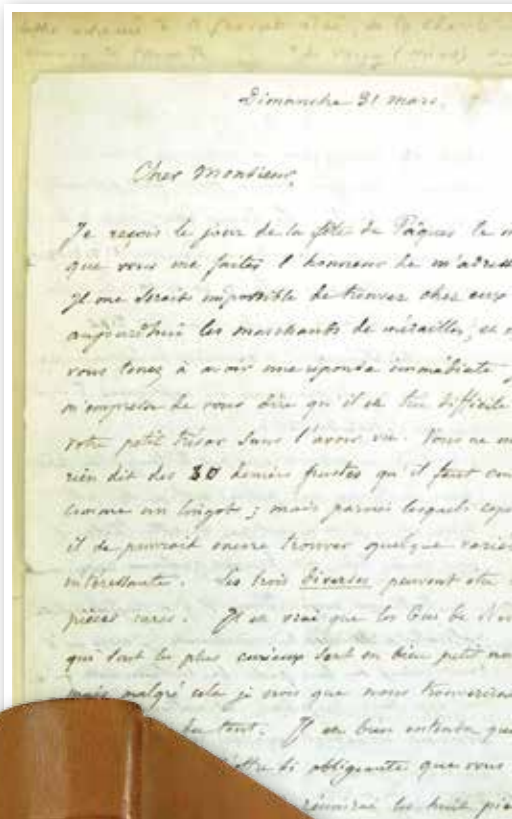 Dimanche 31 mars.
Cher Monsieur,
Je reçois le jour de la fête de Pâques le
que vous me faites l'honneur de m'adress
Il me serait impossible de trouver chez eux
aujourd'hui les marchands de médailles, et
vous tenez à avoir une réponse immédiate
m'empresse de vous dire qu'il est très difficile
votre petit trésor sans l'avoir vu. Vous ne
rien dit des 30 deniers frustes qu'il faut
comme un lingot ; mais parmi lesquels
il se pourrait encore trouver quelque
intéressante. Les trois diverses peuvent être
pièces rares. Il est vrai que les
qui sont les plus curieux sont en bien petit
mais malgré cela je crois que nous trouverions
du tout. Il est bien entendu que
si obligeante que vous
réunirai les huit